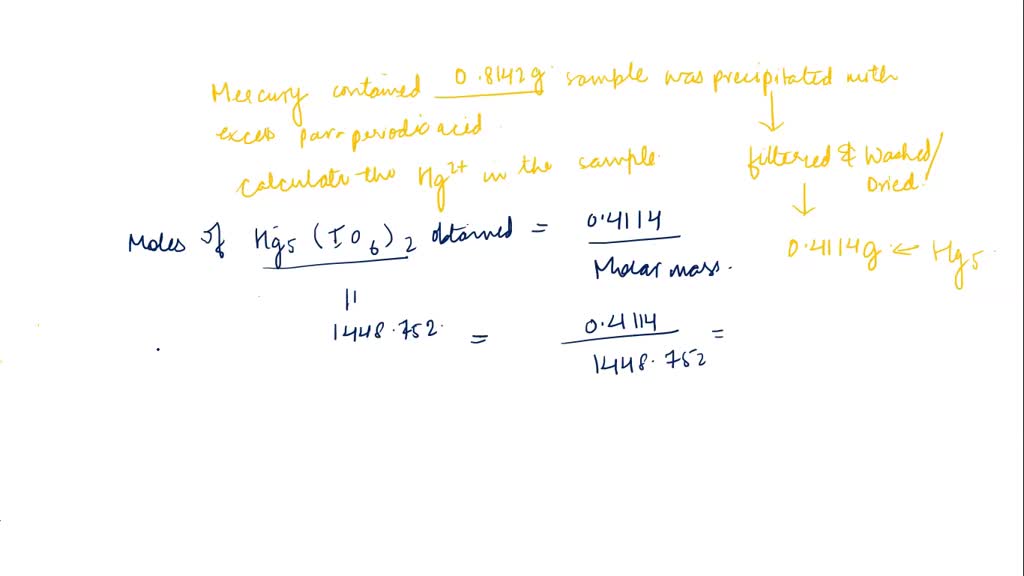 Mercury contained 0.8142g sample was precipitated with
excess para periodic acid.
Calculate the Hg²⁺ in the sample.
filtered & Washed/
Dried.
0.4114g ← Hg5
Moles of Hg5 (IO6)2 obtained = 0.4114
Molar mass.
||
1448.752. = 0.4114 =
1448.752